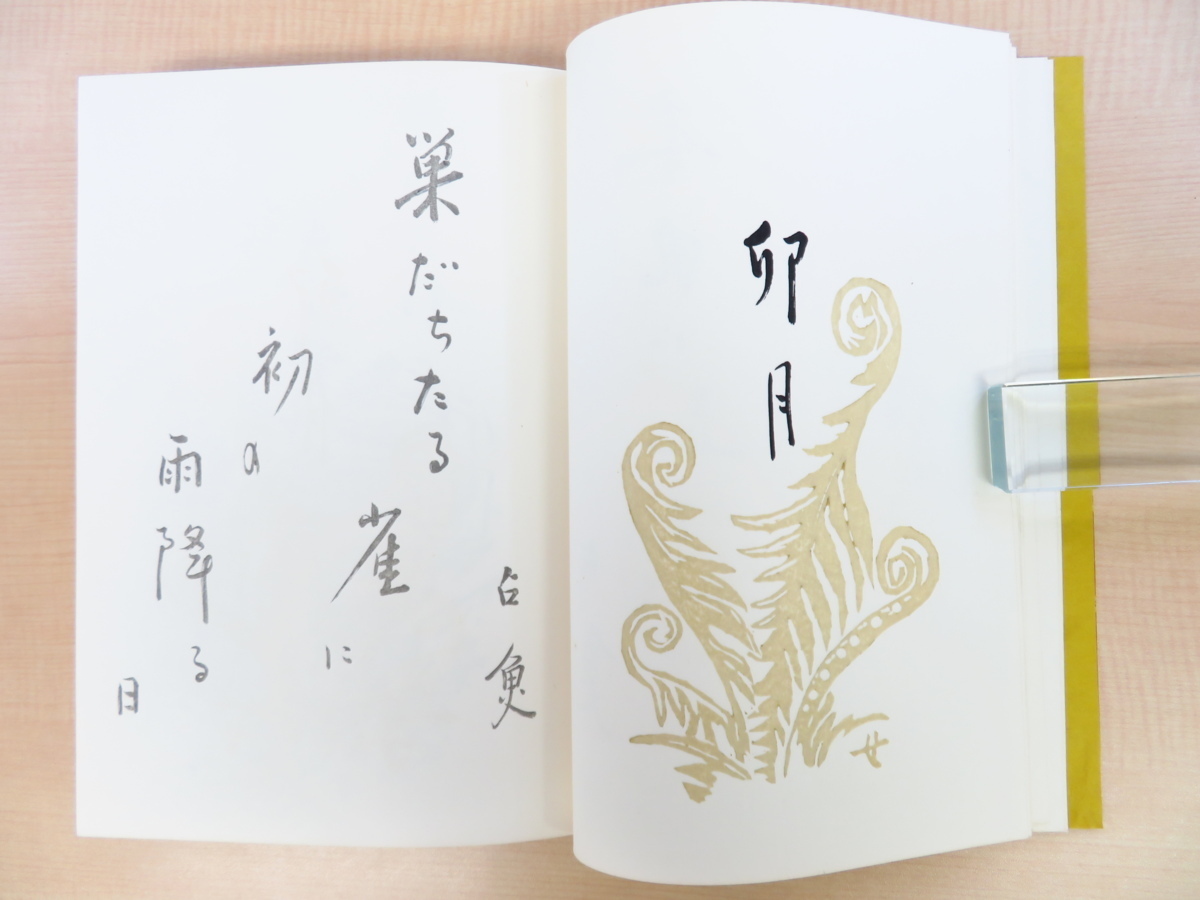 卯月
占魚
巣だちたる
雀に
初の
雨降る
日